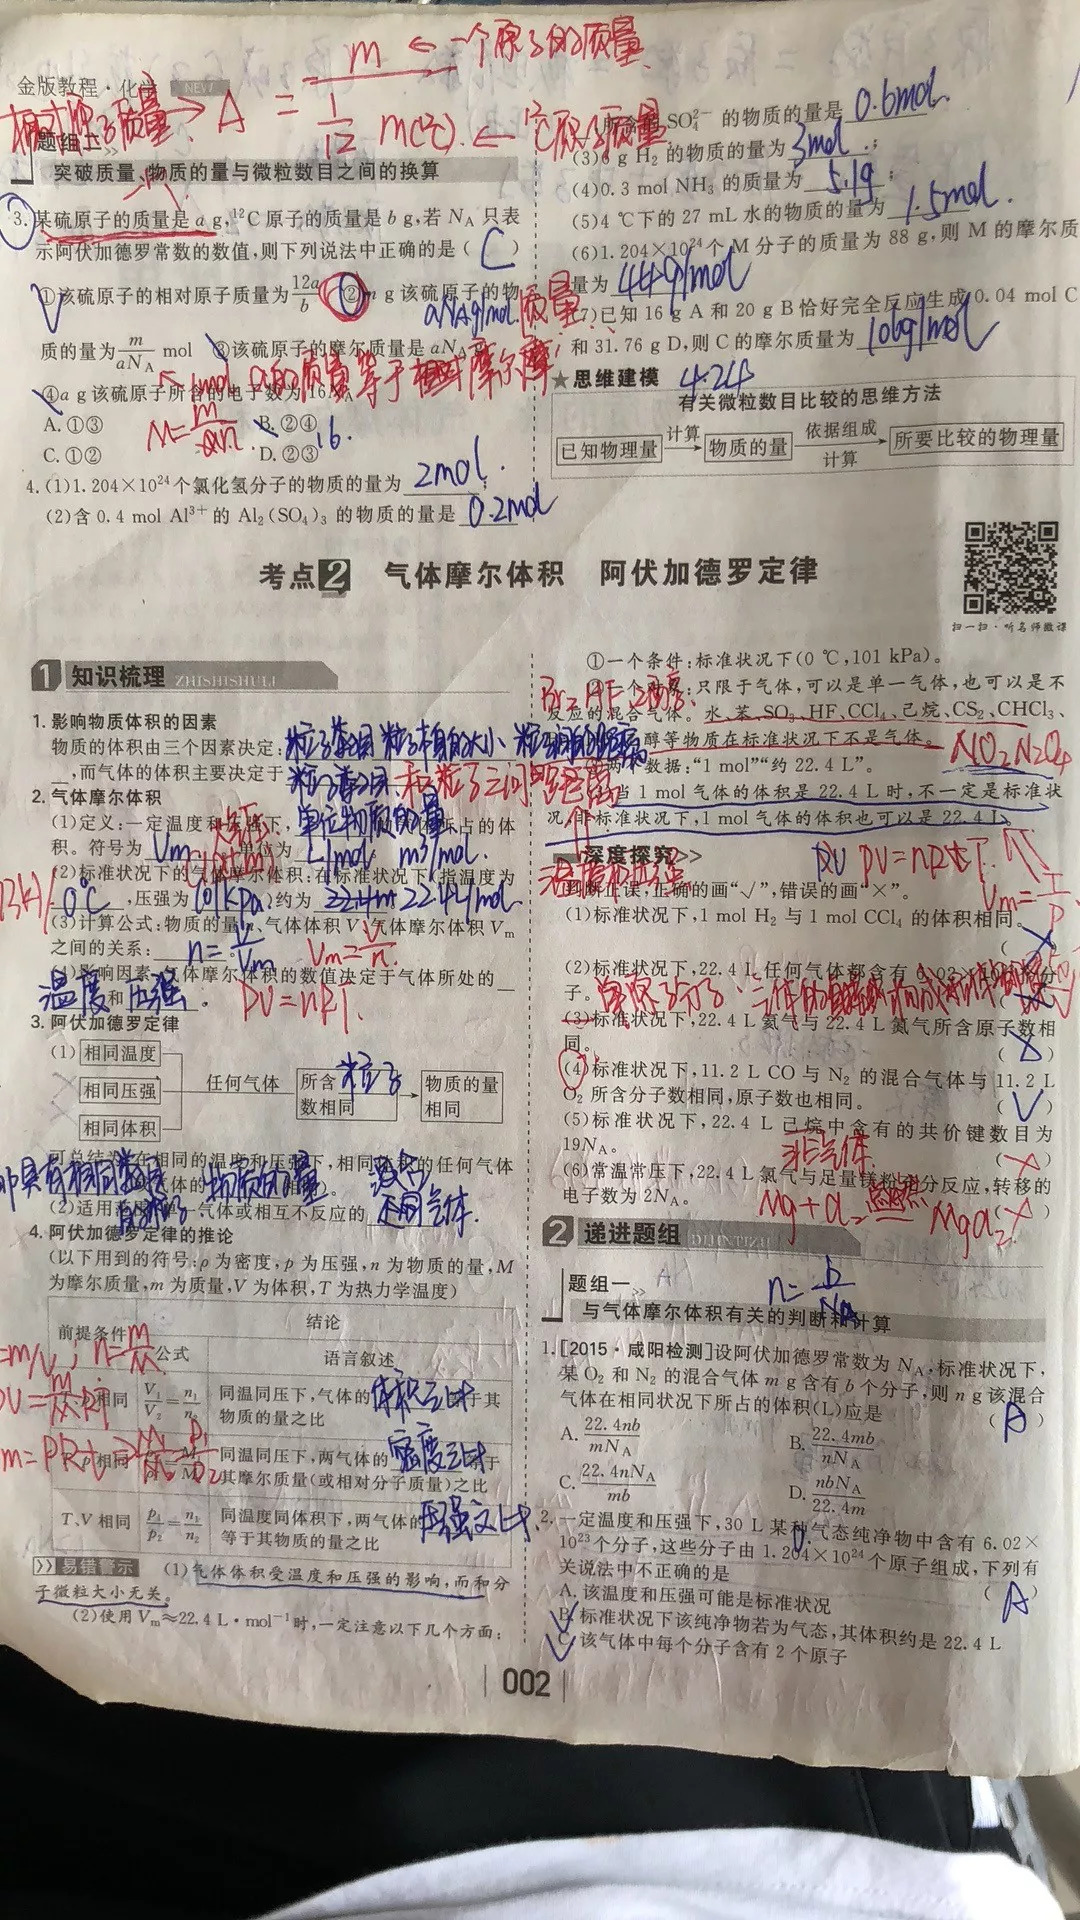 m ← 一个原子的质量
金版教程·化学 NEW
相对原子质量 → A = 1/12 m(¹²C) ← ¹²C原子质量
题组二
突破质量、物质的量与微粒数目之间的换算
3. 某硫原子的质量是 a g,¹²C 原子的质量是 b g,若 N_A 只表
示阿伏加德罗常数的数值,则下列说法中正确的是( C )
①该硫原子的相对原子质量为12a/b ②m g 该硫原子的物
aNAg/mol 质量
质的量为m/(aN_A) mol ③该硫原子的摩尔质量是 aN_A
④a g 该硫原子所含的电子数为 16N_A
A. ①③ B. ②④
C. ①② D. ②③ 16.
4. (1)1.204×10²⁴个氯化氢分子的物质的量为 2mol ;
(2)含 0.4 mol Al³⁺ 的 Al₂(SO₄)₃ 的物质的量是 0.2mol
所含的 SO₄²⁻ 的物质的量是 0.6mol.
(3)6 g H₂ 的物质的量为 3mol ;
(4)0.3 mol NH₃ 的质量为 5.1g ;
(5)4 ℃下的 27 mL 水的物质的量为 1.5mol.
(6)1.204×10²⁴个 M 分子的质量为 88 g,则 M 的摩尔质
量为 44g/mol
(7)已知 16 g A 和 20 g B 恰好完全反应生成 0.04 mol C
和 31.76 g D,则 C 的摩尔质量为 106g/mol
4.24
★思维建模
有关微粒数目比较的思维方法
已知物理量 计算→ 物质的量 依据组成→计算 所要比较的物理量
考点2 气体摩尔体积 阿伏加德罗定律
扫一扫·听名师微课
1 知识梳理 ZHISHISHULI
1. 影响物质体积的因素
物质的体积由三个因素决定: 粒子数目 粒子本身的大小 粒子间的距离
,而气体的体积主要决定于 粒子数目 和粒子之间的距离
2. 气体摩尔体积
(1)定义:一定温度和压强下, 单位物质的量 所占的体
积。符号为 Vm 单位为 L/mol m³/mol.
(2)标准状况下的气体摩尔体积:在标准状况下(指温度为
0℃ ,压强为 101kPa)约为 22.4L/mol
(3)计算公式:物质的量 n、气体体积 V、气体摩尔体积 V_m
之间的关系: n=V/Vm Vm=V/n.
(4)影响因素:气体摩尔体积的数值决定于气体所处的
温度 和 压强. PV=nRT.
3. 阿伏加德罗定律
(1) 相同温度
相同压强 任何气体 所含 粒子 数相同 → 物质的量相同
相同体积
可总结为:在相同的温度和压强下,相同体积的任何气体
(2)适用范围:单一气体或相互不反应的 混合气体.
4. 阿伏加德罗定律的推论
(以下用到的符号:ρ 为密度,p 为压强,n 为物质的量,M
为摩尔质量,m 为质量,V 为体积,T 为热力学温度)
前提条件 结论
公式 语言叙述
相同 V₁/V₂=n₁/n₂ 同温同压下,气体的 体积之比 等于其
物质的量之比
相同 同温同压下,两气体的 密度之比 等于
其摩尔质量(或相对分子质量)之比
T、V 相同 p₁/p₂=n₁/n₂ 同温度同体积下,两气体的 压强之比
等于其物质的量之比
易错警示 (1)气体体积受温度和压强的影响,而和分
子微粒大小无关。
(2)使用 V_m≈22.4 L·mol⁻¹时,一定注意以下几个方面:
①一个条件:标准状况下(0 ℃,101 kPa)。
:只限于气体,可以是单一气体,也可以是不
反应的混合气体。水、苯、SO₃、HF、CCl₄、己烷、CS₂、CHCl₃、
醇等物质在标准状况下不是气体。 NO₂ N₂O₄
数据:“1 mol”“约 22.4 L”。
当 1 mol 气体的体积是 22.4 L 时,不一定是标准状
况,非标准状况下,1 mol 气体的体积也可以是 22.4 L。
深度探究>> PV=nRT
判断正误,正确的画“√”,错误的画“×”。
(1)标准状况下,1 mol H₂ 与 1 mol CCl₄ 的体积相同。
( × )
(2)标准状况下,22.4 L 任何气体都含有 6.02×10²³个分
子。 ( × )
(3)标准状况下,22.4 L 氦气与 22.4 L 氮气所含原子数相
同。 ( × )
(4)标准状况下,11.2 L CO 与 N₂ 的混合气体与 11.2 L
O₂ 所含分子数相同,原子数也相同。 ( √ )
(5)标准状况下,22.4 L 己烷中含有的共价键数目为
19N_A。 非气体 ( × )
(6)常温常压下,22.4 L 氯气与足量镁粉充分反应,转移的
电子数为 2N_A。 Mg+Cl₂ 点燃 MgCl₂ ×
2 递进题组 DIJINTIZU
题组一 n=b/NA
与气体摩尔体积有关的判断和计算
1. [2015·咸阳检测]设阿伏加德罗常数为 N_A,标准状况下,
某 O₂ 和 N₂ 的混合气体 m g 含有 b 个分子,则 n g 该混合
气体在相同状况下所占的体积(L)应是 ( A )
A. 22.4nb/(mN_A) B. 22.4mb/(nN_A)
C. 22.4nN_A/(mb) D. nbN_A/(22.4m)
2. 一定温度和压强下,30 L 某种气态纯净物中含有 6.02×
10²³个分子,这些分子由 1.204×10²⁴个原子组成,下列有
关说法中不正确的是 ( A )
A. 该温度和压强可能是标准状况
B. 标准状况下该纯净物若为气态,其体积约是 22.4 L
C. 该气体中每个分子含有 2 个原子
002